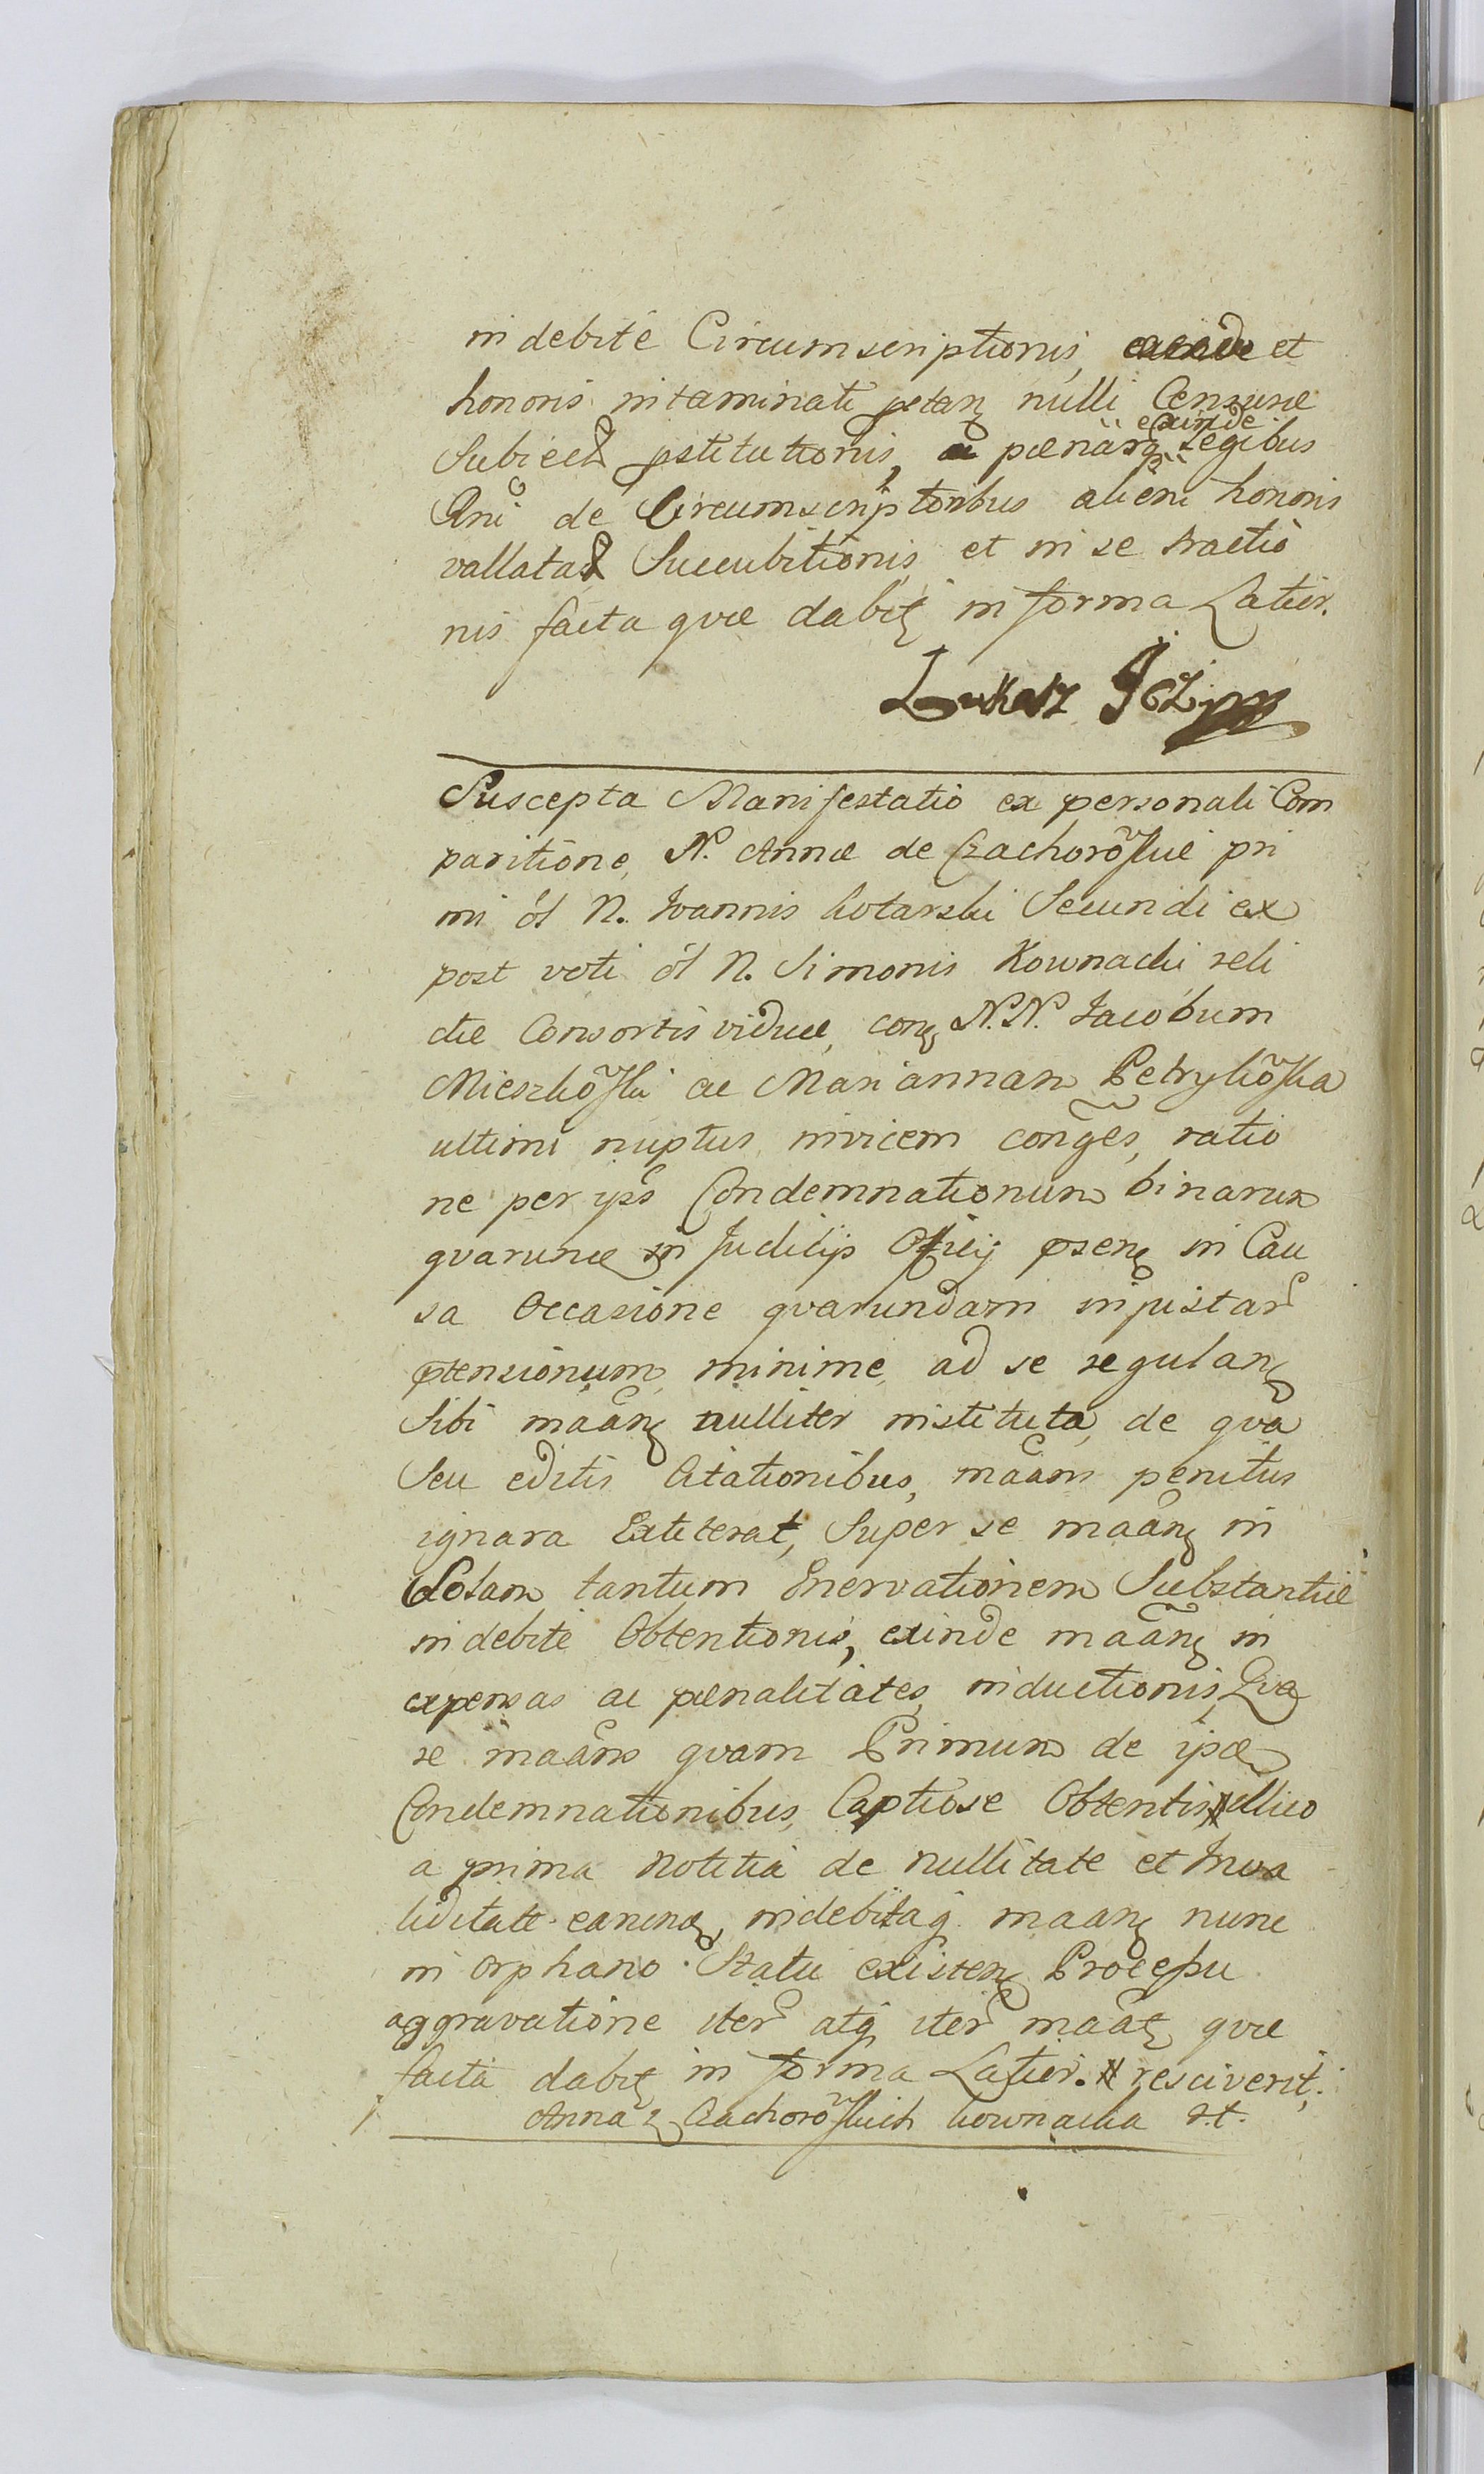 indebite Circumscriptionis, et
honoris intaminati petarz nulli Censuræ
exinde
Subiecta pstitutionis, a pœnarz Legibus
Rni de Circumscriptoribus alieni honoris
vallatas Succubitionis et in se tractio
nis facta quæ dabitz in forma Latiori.
Łukasz
Suscepta Manifestatio ex personali Com
paritione, N. Annæ de Czachorõskie pri
mi ol N. Ioannis Kotarski Secundi ex
post voti ol N. Simonis Kownacki reli
ctæ Consortis viduæ, conz N.N. Iacobum
Mieszkõski ac Mariannam Petrykõska
ultimi nuptus invicem conges, ratio
ne per ips Condemnationum binarum
quarumcz in Judicijs Officij psenz in Cau
sa Occasione quarundam injustar
ptensionum minime ad se regulanz
Sibi maanz nulliter instituta, de qva
Seu editis Citationibus, maans penitus
ignara Extiterat, Super se maanz in
Solam tantum Enervationem Substantiæ
indebite Obtentionis, exinde maanz in
expensas ac pœnalitates, inductionis, Qvæ
se maans qvam Primum de ipsz
Condemnationibus, Captiose Obtentis # illico
a prima notitia de nullitate et Inva
liditate earumz, indebitaq maanz nunc
in orphano Statu existenz Processu
aggravatione iter atq iter maatz quæ
facta dabitz in forma Latiori. # resciverit;
Anna z Czachorõskich Kownacka s.t.